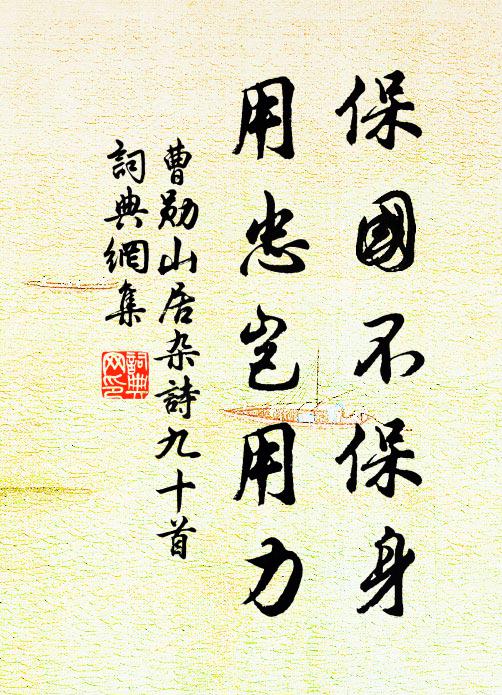 保國不保身
用忠豈用力
曹勛山居杂詩九十首
詞典網集
詞典
网印